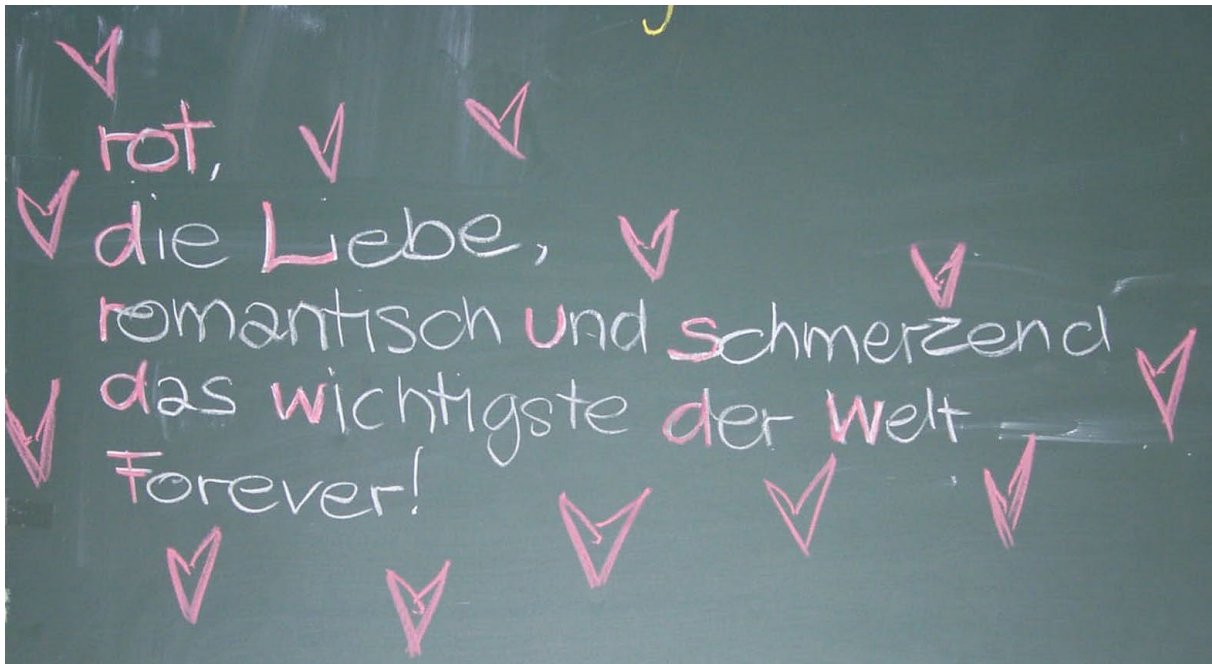 rot,
die Liebe,
romantisch und schmerzend
das wichtigste der Welt
Forever!